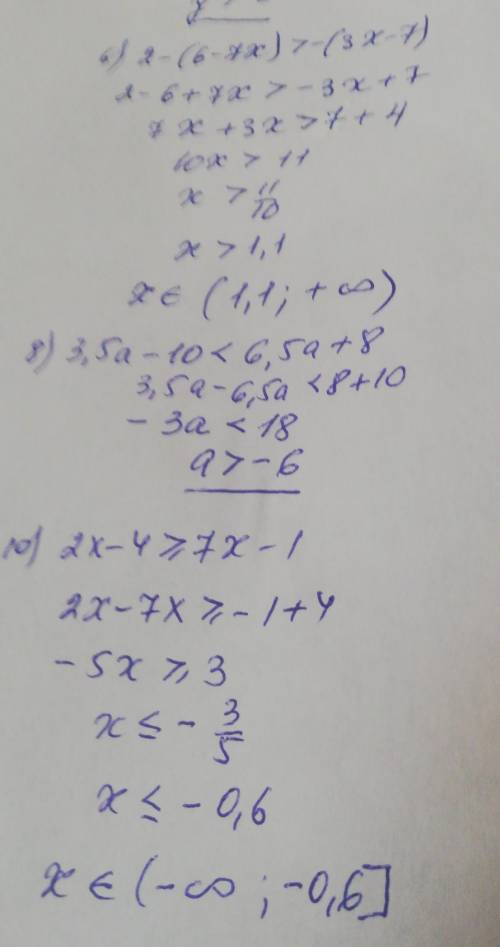 6) 2-(6-7x)>-(3x-7)
2-6+7x>-3x+7
7x+3x>7+4
10x>11
x>11/10
x>1,1
x∈(1,1;+∞)
8) 3,5a-10<6,5a+8
3,5a-6,5a<8+10
-3a<18
a>-6
10) 2x-4⩾7x-1
2x-7x⩾-1+4
-5x⩾3
x≤-3/5
x≤-0,6
x∈(-∞;-0,6]